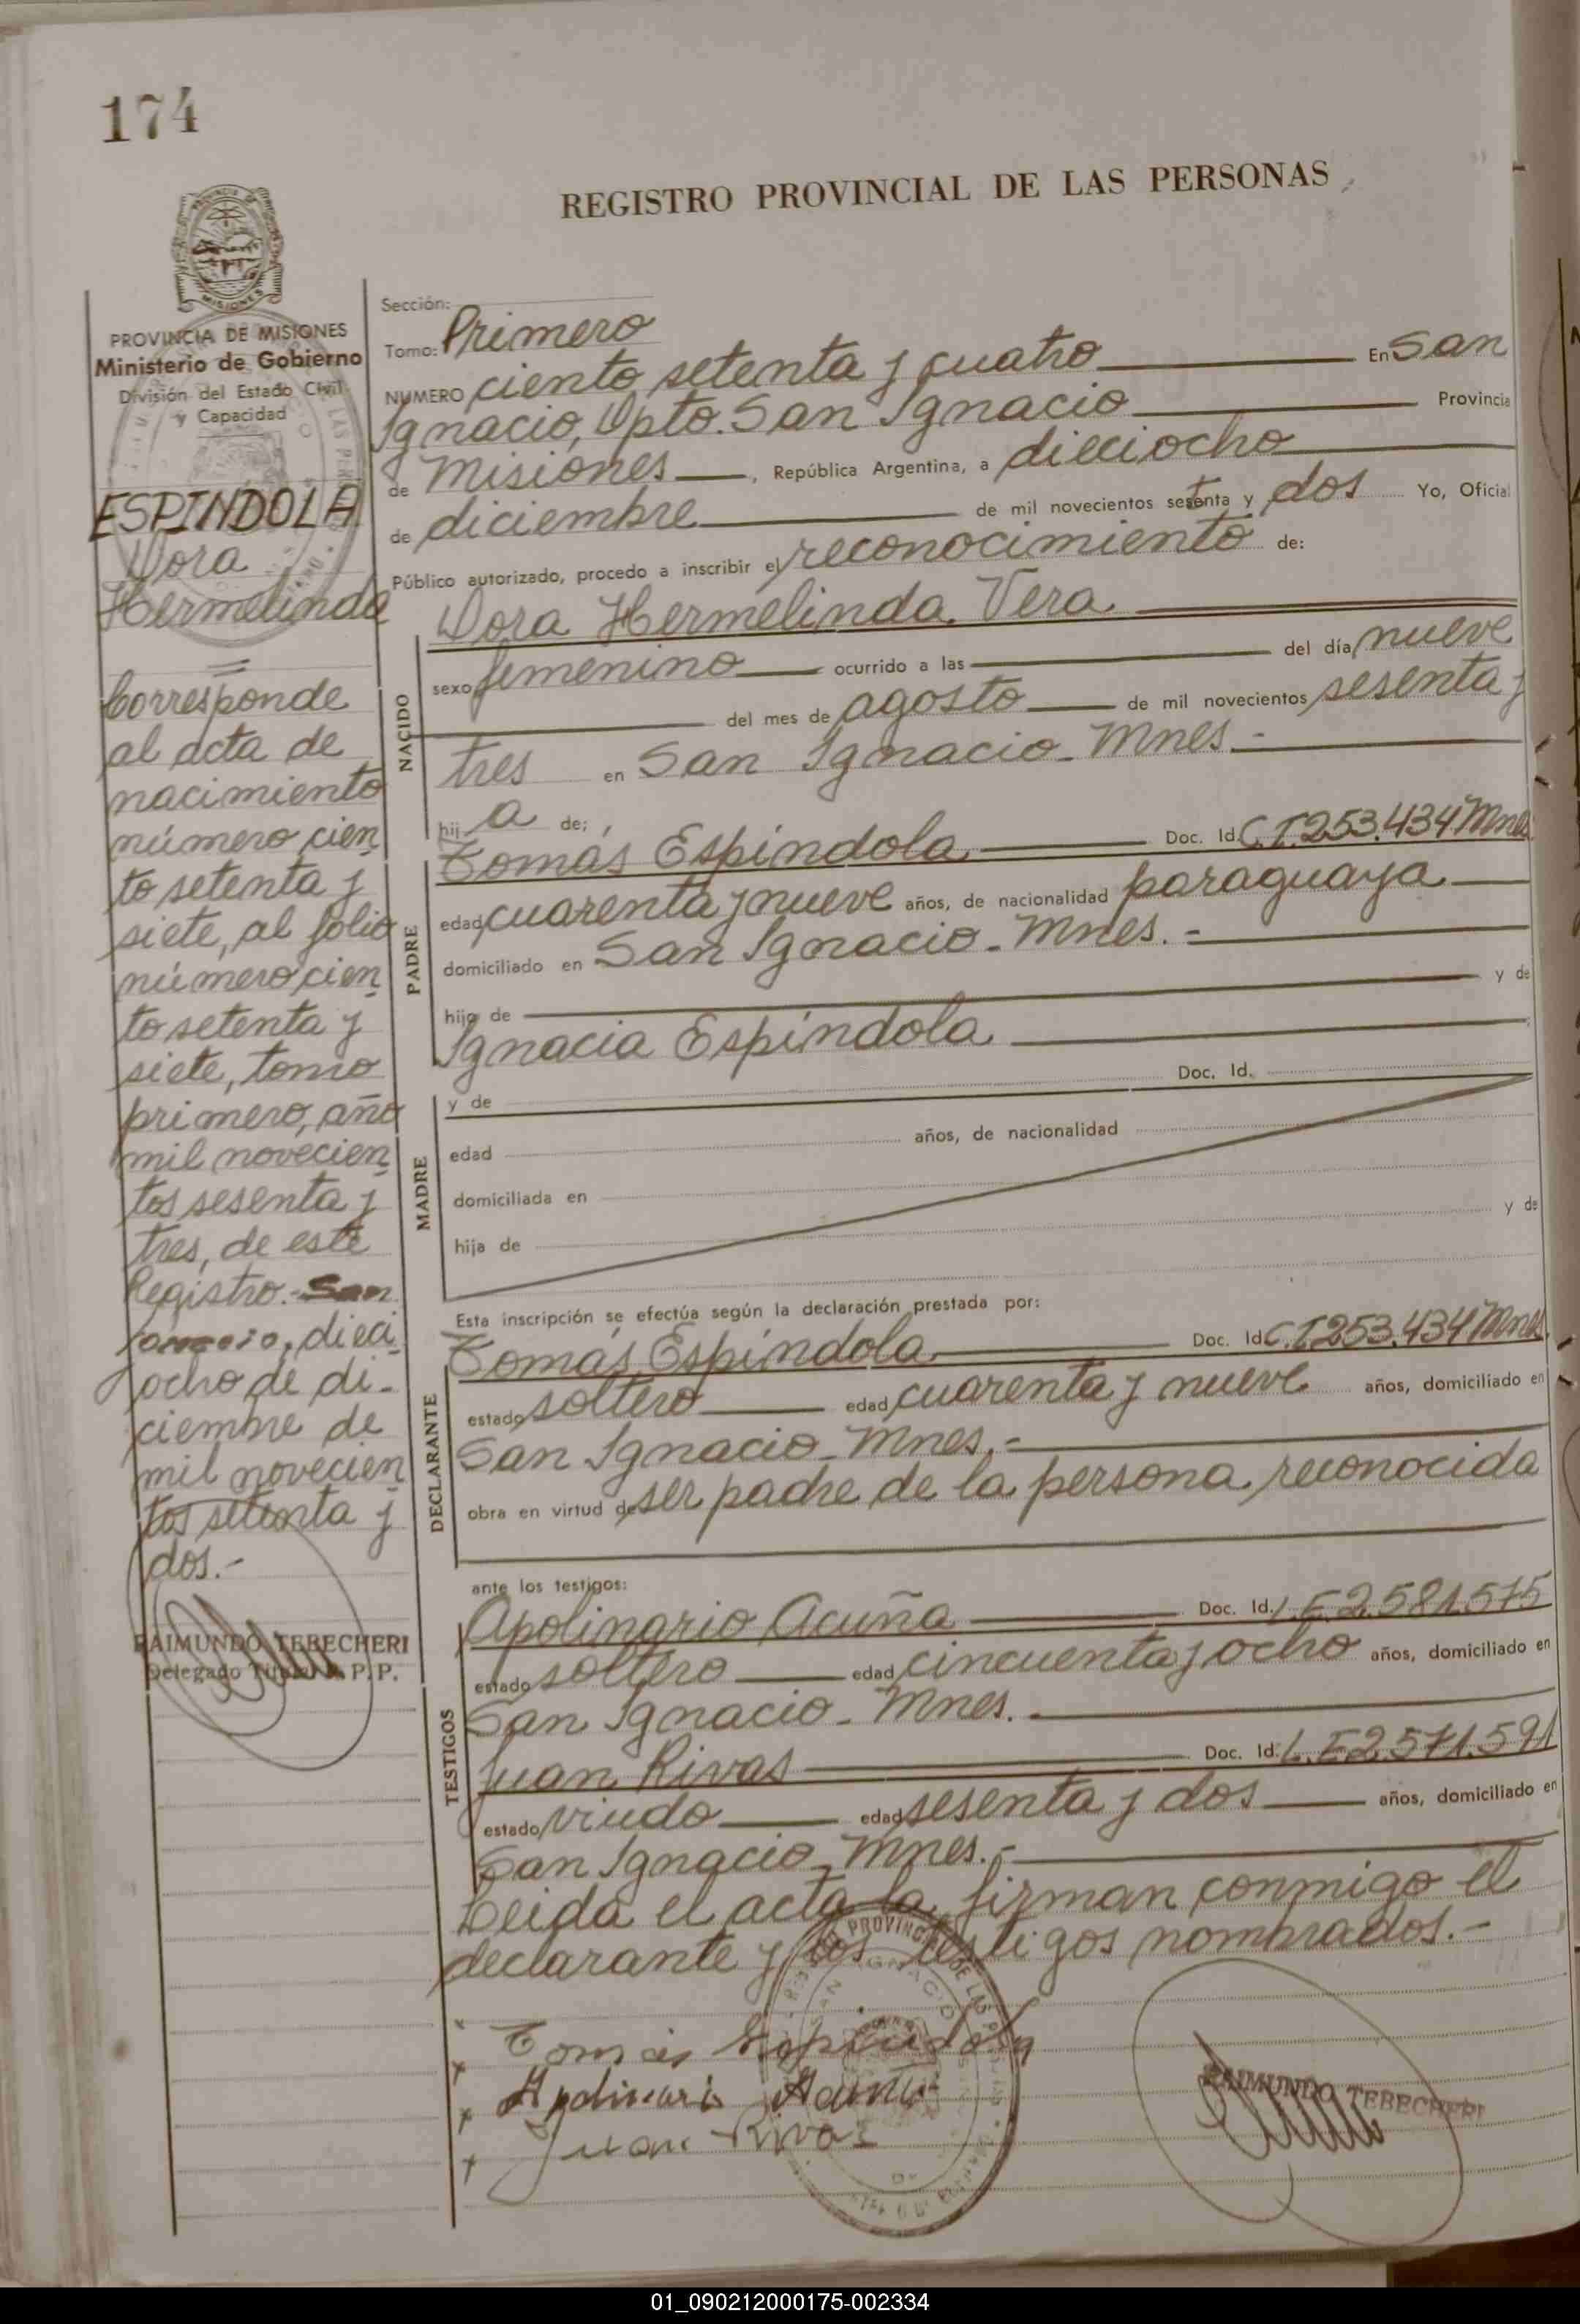 174
REGISTRO PROVINCIAL DE LAS PERSONAS
MISIONES
PROVINCIA DE MISIONES
Ministerio de Gobierno
División del Estado Civil
y Capacidad
ESPINDOLA
Dora
Hermelinda
Corresponde
al acta de
nacimiento
número cien
to setenta y
siete, al folio
número cien
to setenta y
siete, tomo
primero, año
mil novecien
tos sesenta y
tres, de este
Registro.- San
Ignacio, dieci
ocho de di-
ciembre de
mil novecien
tos setenta y
dos.-
RAIMUNDO TEBECHERI
Delegado Titular R. P. P.
Sección:
Tomo: Primero
NUMERO ciento setenta y cuatro En San
Ignacio, Dpto. San Ignacio Provincia
de Misiones, República Argentina, a dieciocho
de diciembre de mil novecientos setenta y dos Yo, Oficial
Público autorizado, procedo a inscribir el reconocimiento de:
Dora Hermelinda Vera
NACIDO
sexo femenino ocurrido a las del día nueve
del mes de agosto de mil novecientos sesenta y
tres en San Ignacio - Mnes. -
hij a de;
PADRE
Tomás Espíndola Doc. Id. C.I. 253.434 Mnes
edad cuarenta y nueve años, de nacionalidad paraguaya
domiciliado en San Ignacio - Mnes. -
hijo de y de
Ignacia Espíndola
MADRE
y de Doc. Id.
edad años, de nacionalidad
domiciliada en
hija de y de
Esta inscripción se efectúa según la declaración prestada por:
DECLARANTE
Tomás Espíndola Doc. Id. C.I. 253.434 Mnes
estado soltero edad cuarenta y nueve años, domiciliado en
San Ignacio - Mnes. -
obra en virtud de ser padre de la persona reconocida
ante los testigos:
TESTIGOS
Apolinario Acuña Doc. Id. L.E. 2.581.575
estado soltero edad cincuenta y ocho años, domiciliado en
San Ignacio - Mnes.
Juan Rivas Doc. Id. L.E. 2.571.591
estado viudo edad sesenta y dos años, domiciliado en
San Ignacio - Mnes. -
Leida el acta la firman conmigo el
declarante y los testigos nombrados. -
Tomás Espíndola
Juan Rivas
RAIMUNDO TEBECHERI
01_090212000175-002334